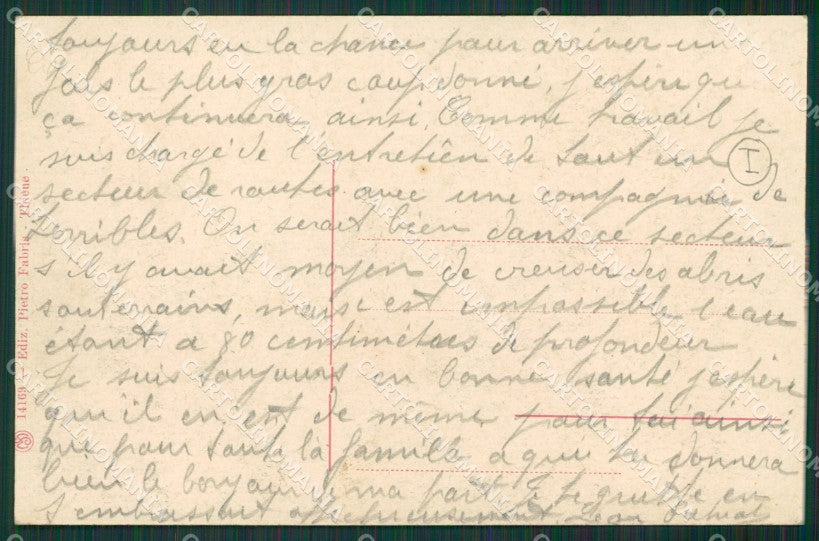 toujours eu la chance pour arriver un
fois le plus gras coup donné, j'espère que
ça continuera ainsi. Comme travail je
suis chargé de l'entretien de tout un
secteur de routes avec une compagnie de
terribles. On serait bien dans ce secteur
s'il y avait moyen de creuser des abris
souterrains, mais c'est impossible l'eau
étant a 80 centimètres de profondeur
Je suis toujours en bonne santé j'espère
qu'il en est de même pour toi ainsi
que pour toute la famille a qui tu donnera
bien le bonjour ma part Je te quitte en
t'embrassant affectueusement
I
14169 - Ediz. Pietro Fabris, Fiséne
CARTOLINOMANIA